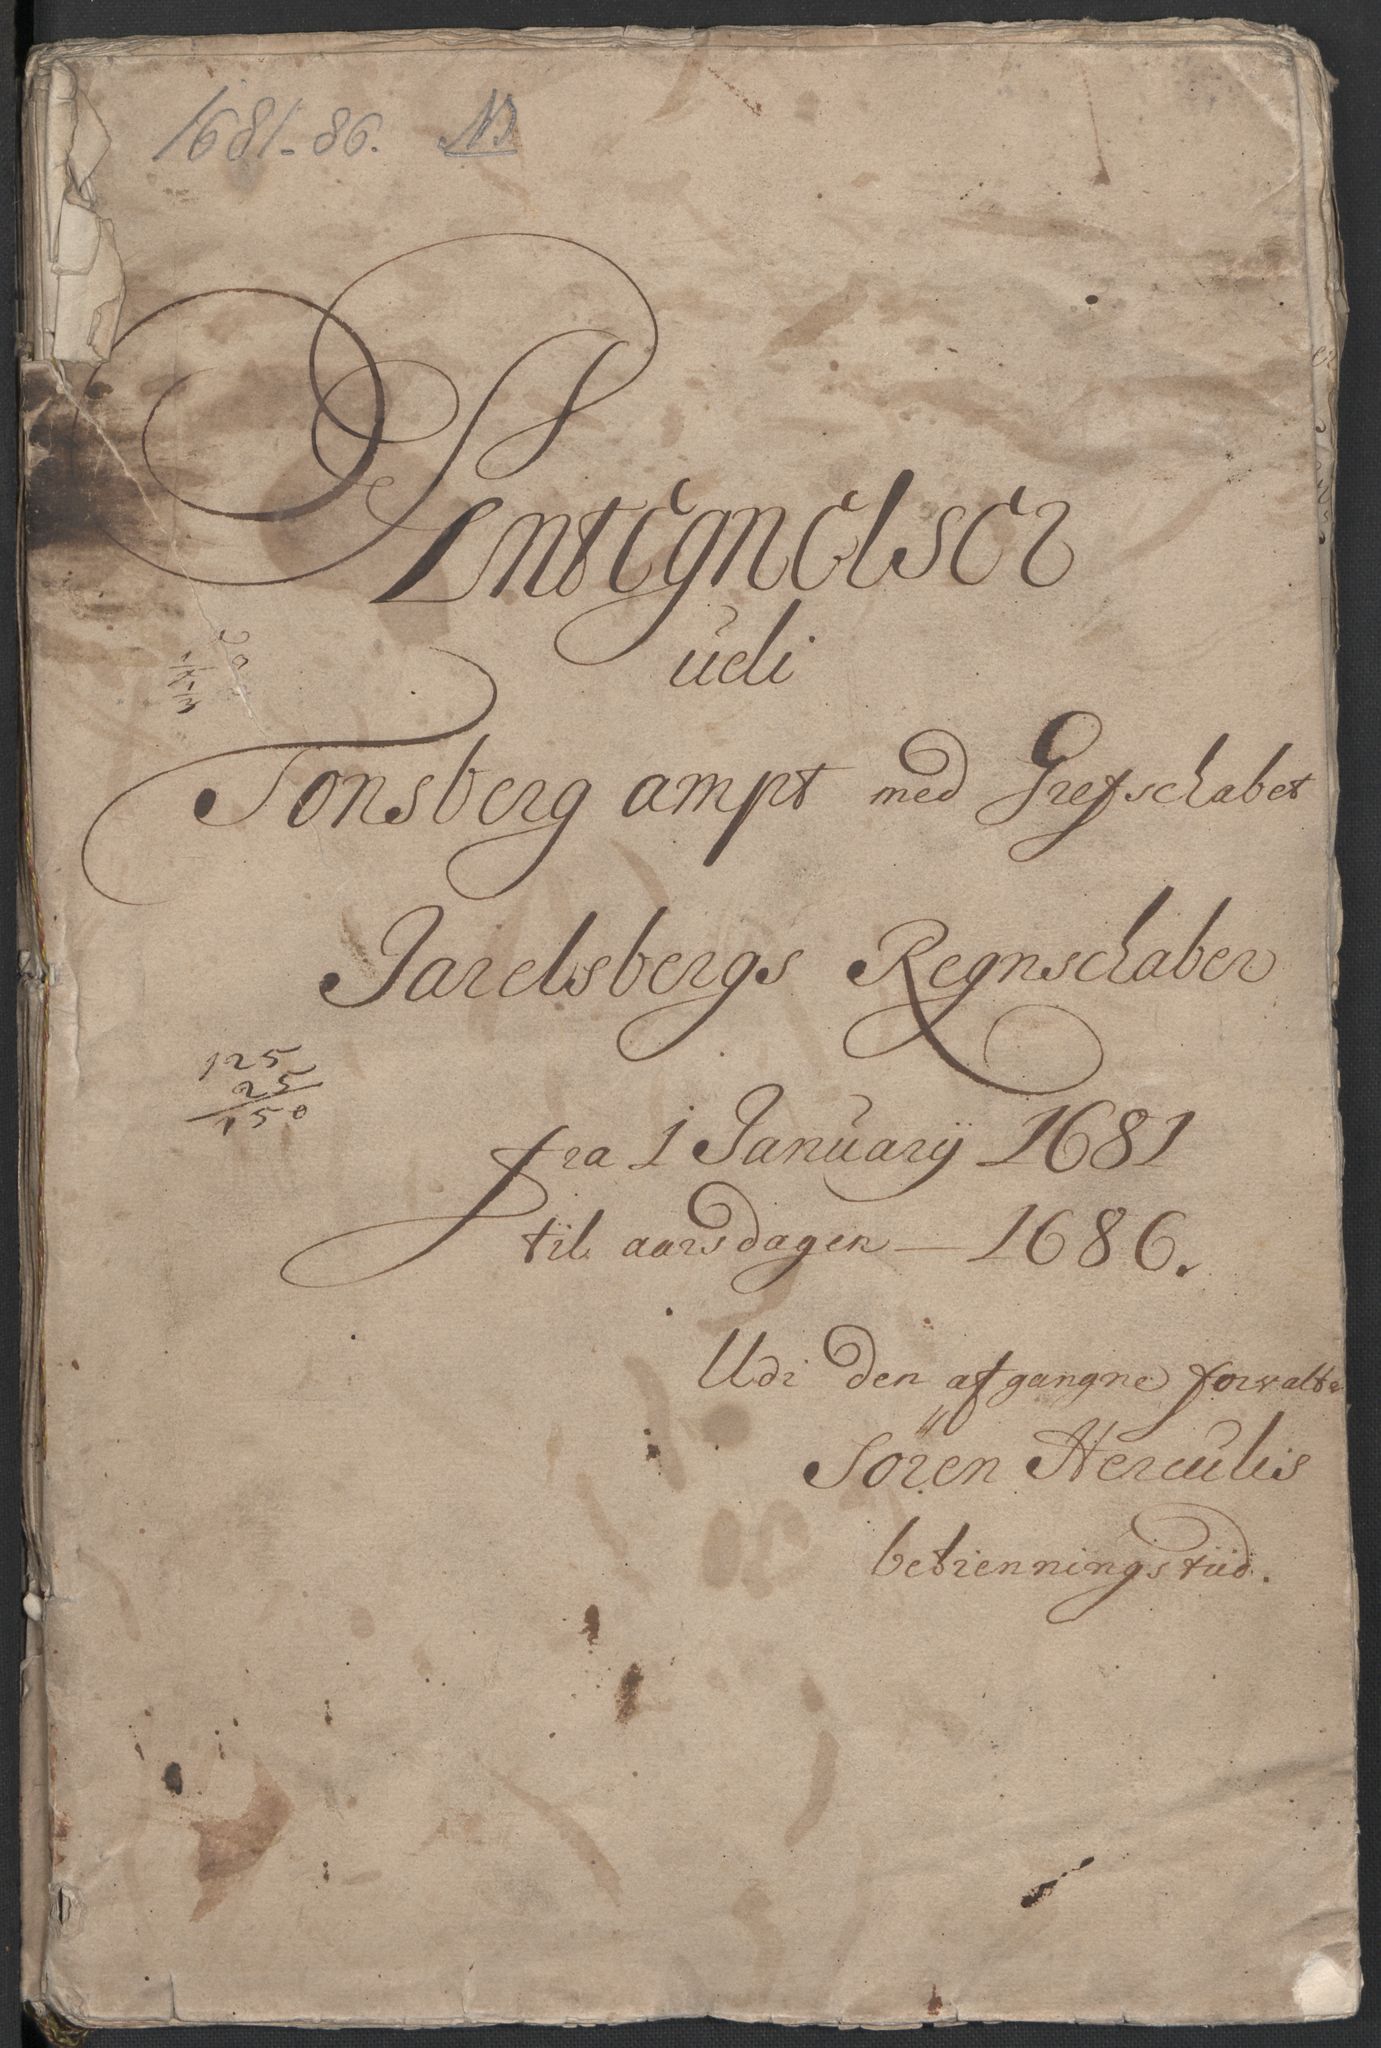 1681-86. NB
Antegnelser
udi
Tonsberg ampt med Grefschabet
Jarelsbergs Regnschaber
125
25
150
fra 1 January 1681
til aarsdagen — 1686.
Udi den afgangne forvalter
Sören Herculis
betienningstiid.